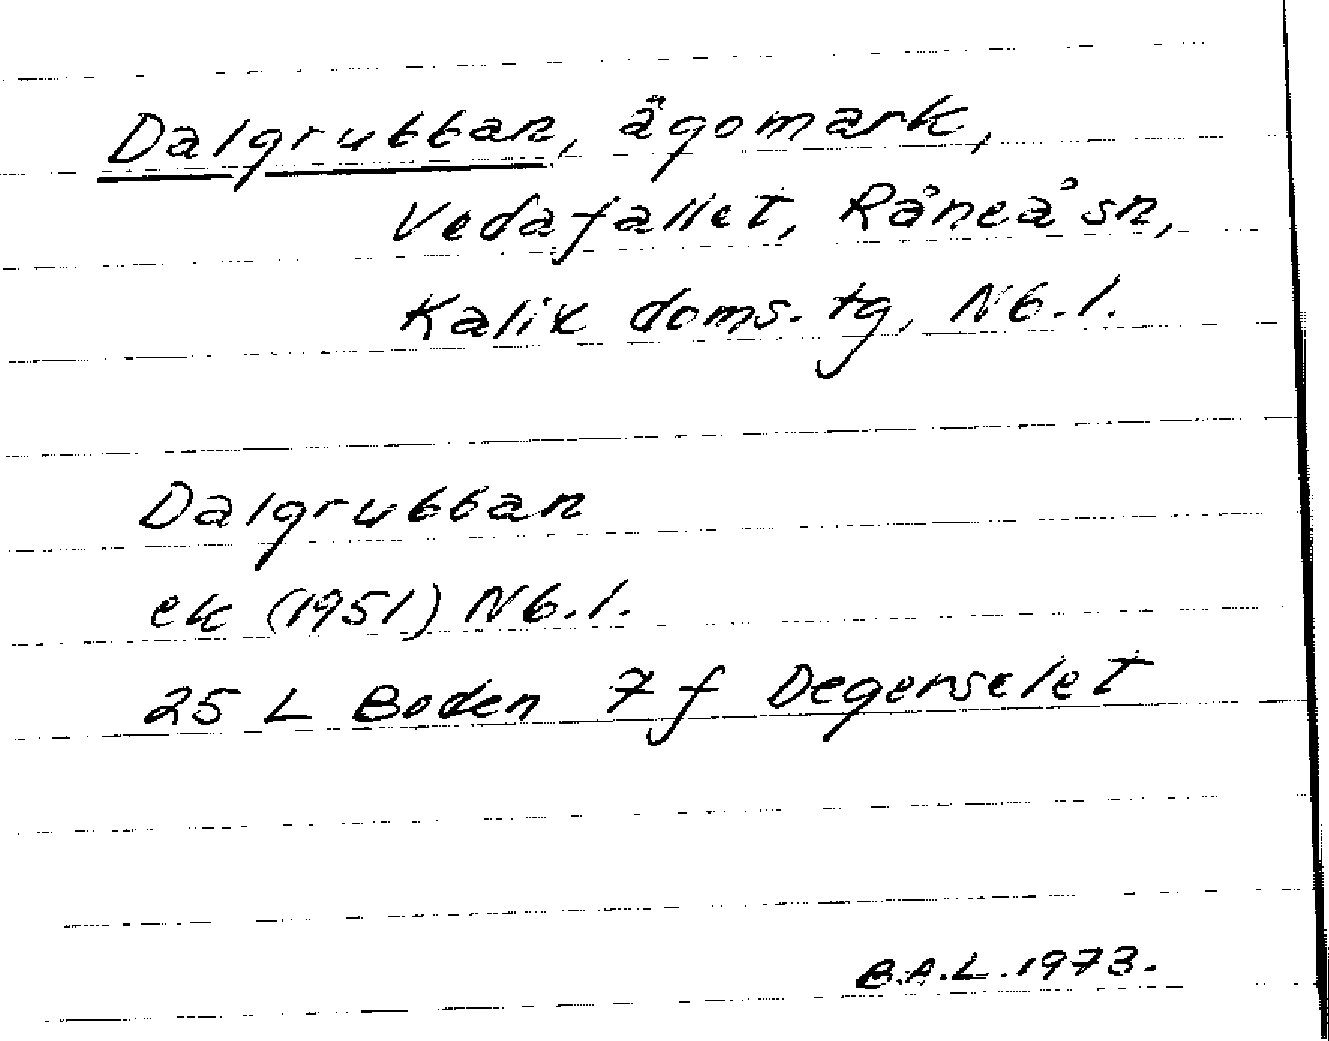 Dalgrubban, ägomark,
Vedafallet, Råneå sn,
Kalix doms. tg, Nb. l.
Dalgrubban
ek (1951) Nb. l.
25 L Boden 7 f Degerselet
B.A.L. 1973.